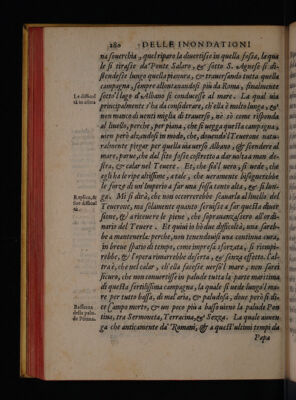 280 DELLE INONDATIONI
na souerchia, quel riparo la diuertisse in quella fossa, la qua
le si tirasse da Ponte Salaro, & sotto S. Agnese si di-
stendesse lungo quella pianura, & trauersando tutta quella
campagna, sempre allontanandosi piu da Roma, finalmente
sotto'l lago d'Albano si conducesse al mare. La qual via
principalmente s'ha da considerare, ch'ella è molto lunga, &
non manco di uenti miglia di trauerso, ne sò come risponda
al liuello, perche, per piana, che si uegga quella campagna,
non però alzandosi in modo, che douendo'l Teuere natu-
ralmente piegar per quella via uerso Albano, & scendere al
mare, parue, che dal sito fosse costretto a dar uolta à man de-
stra, & calar nel Teuere. Et, che sia'l uero, si uede, che
egli ha le ripe altissime, e tale, che ueramente bisognerebbe
le forze di un'Imperio à far una fossa tanto alta, & si lun-
ga. Mi si dirà, che non occorrerebbe scauarla al liuello del
Teuerone, ma solamente quanto seruisse à far quella diuer
sione, & a riceuere le piene, che soprauanzassero all'ordi-
nario del Teuere. Et quiui io hò due difficoltà, una sareb-
be à mantenerla: perche, non tenendouisi una continua cura,
in breue spatio di tempo, come impresa sforzata, si riempi-
rebbe, & l'opera rimarrebbe deserta, & senza effetto. L'al-
tra è, che nel calar, ch'ella facesse uerso'l mare, non sarei
sicuro, che non conuertisse in palude tutta la parte marittima
di questa fertilissima campagna, la quale si uede lungo'l ma-
re per tutto bassa, di mal'aria, & paludosa, doue però si di-
ce Campo morto, & un poco più a basso uiene la palude Pon
tina, tra Sermoneta, Terracina, & Sezza. La quale auuen-
ga che anticamente da' Romani, & a quest'ultimi tempi da
Papa
La difficul
tà in altera
Replica, &
sue difficul
tà.
Bassezza
della palu-
de Pótina.